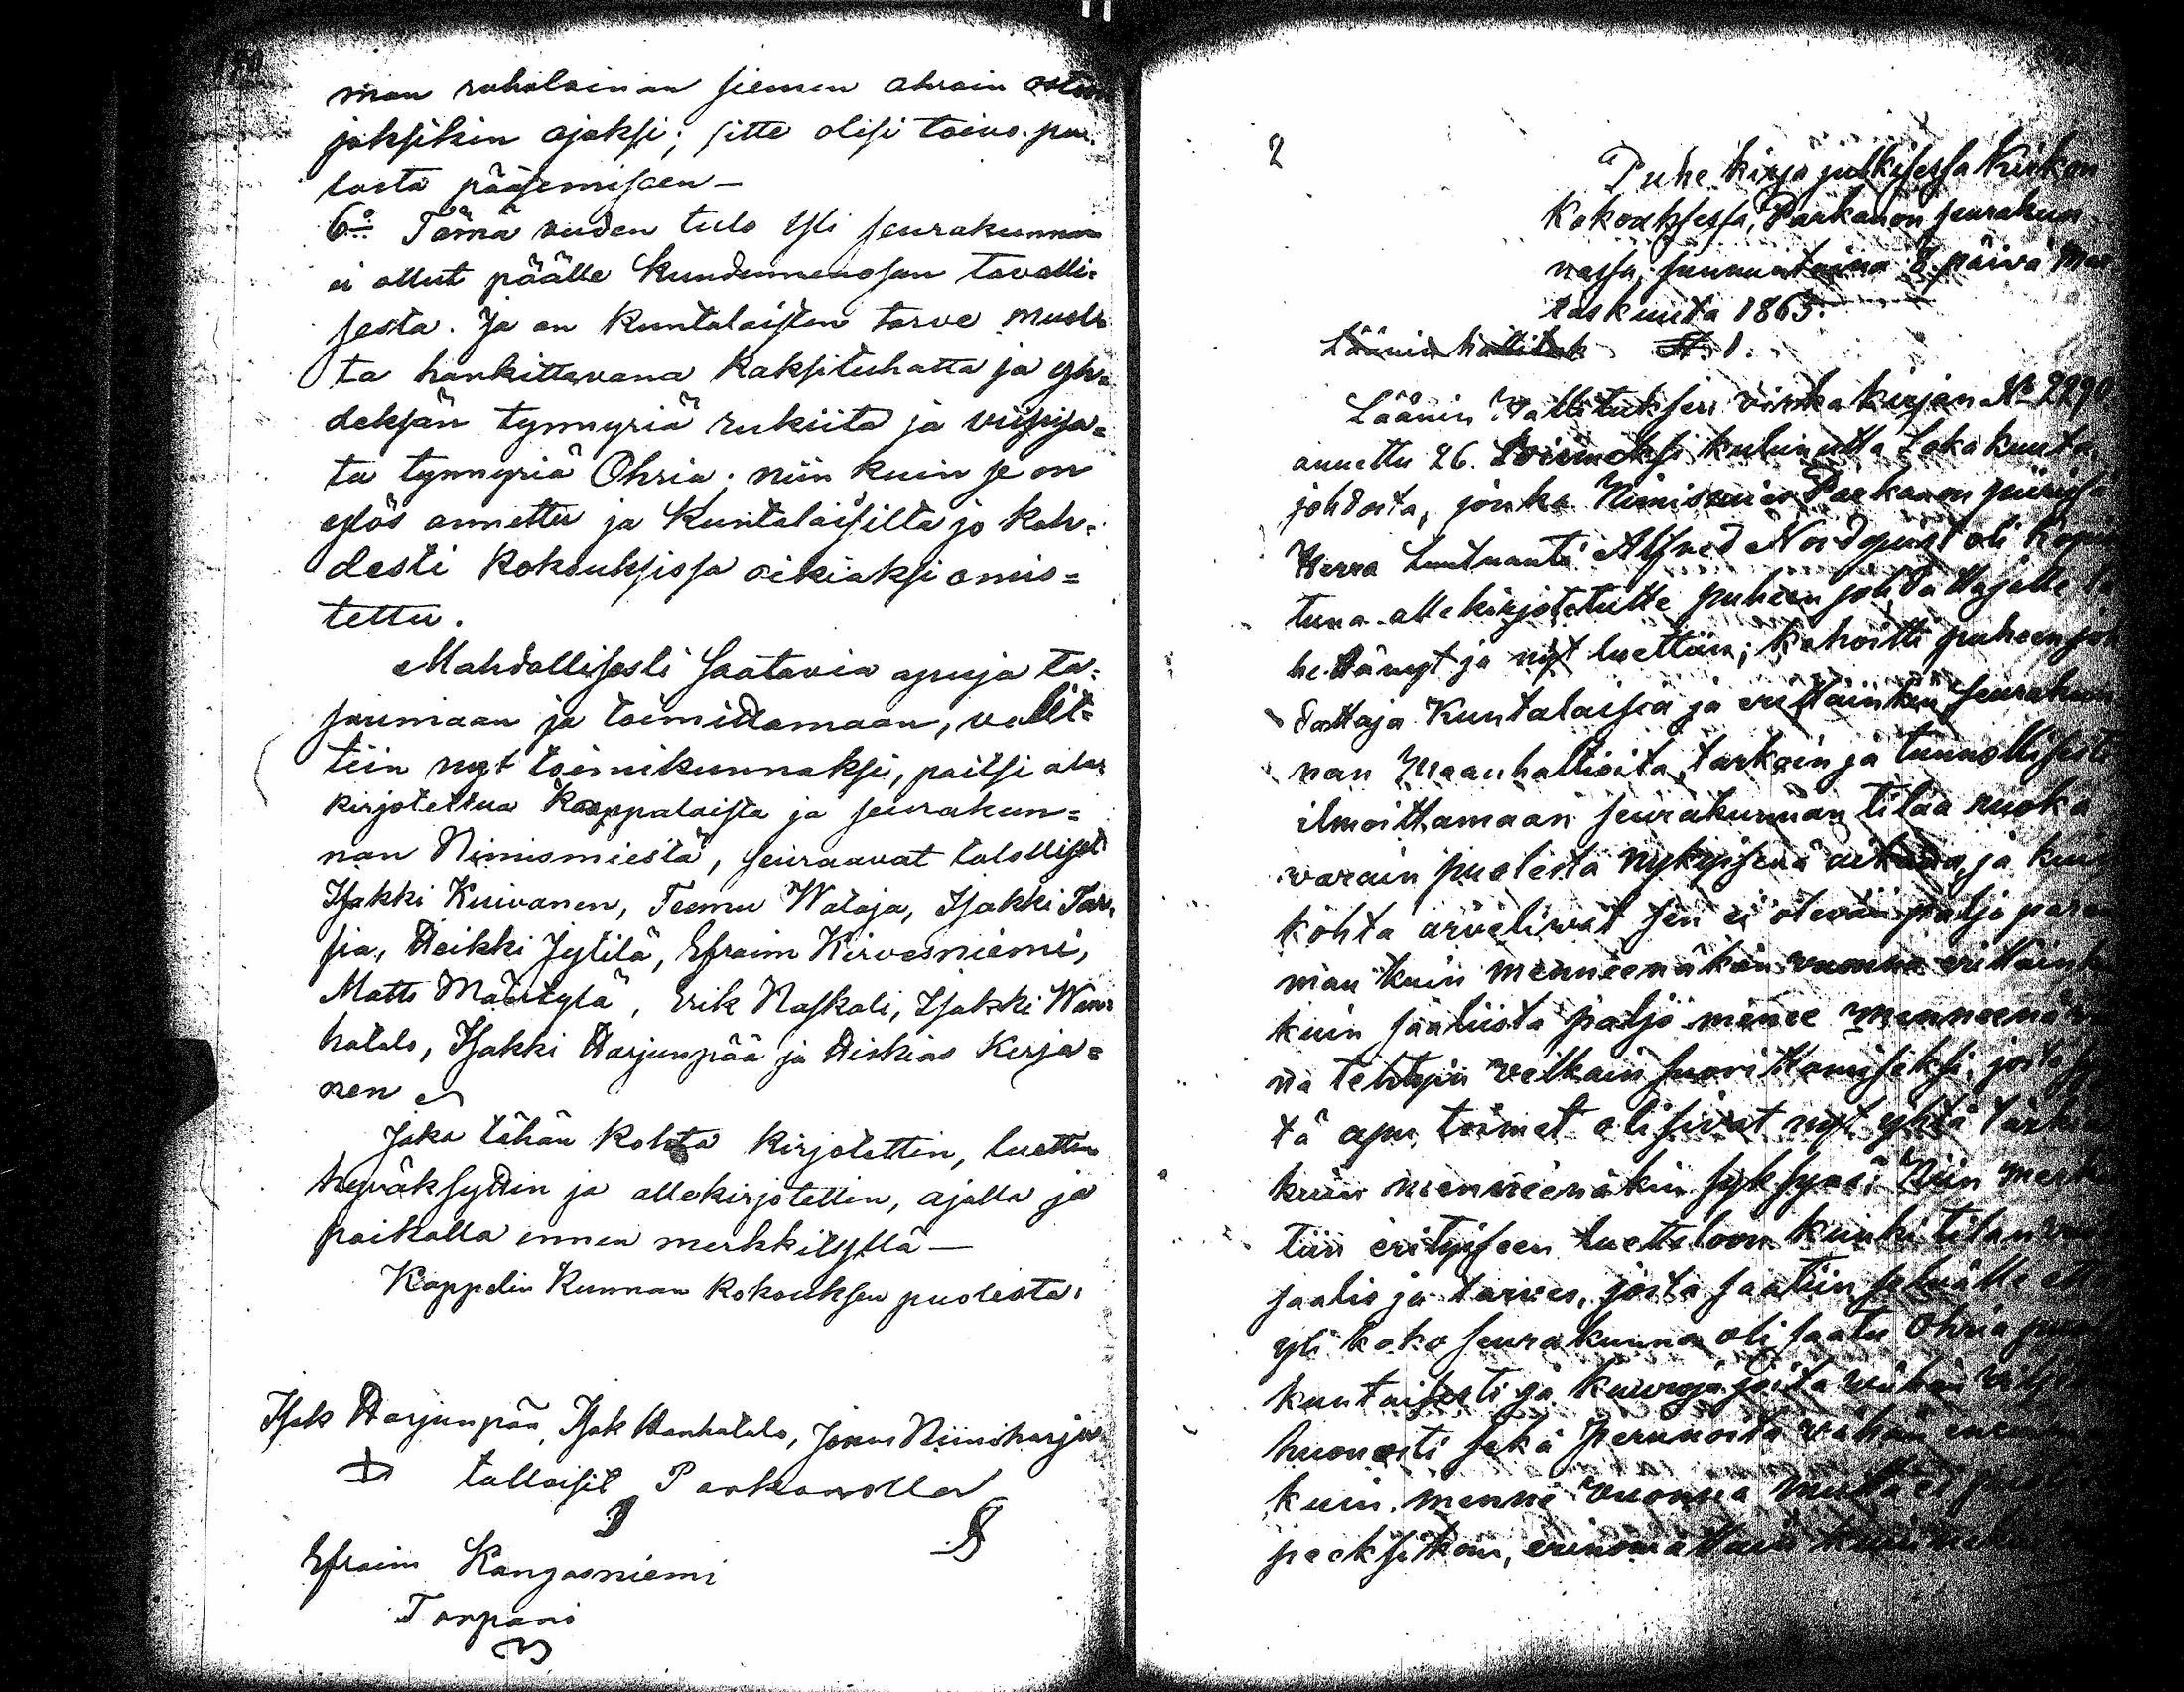 man rahalainan siemen ohrain ostoon
joksikin ajaksi; sitte olisi toivo puu-
losta pääsemiseen —
6o Tämä vuoden tulo yli seurakunnan
ei ollut päälle kuudennenosan tavalli-
sesta. Ja on kuntalaisten tarve muol-
ta hankittavana kaksituhatta ja yh-
deksän tynnyriä rukiita ja viisisa-
ta tynnyriä Ohria; niin kuin se on
ylös annettu ja kuntalaisilta jo kah-
desti kokouksissa oikiaksi omis-
tettu.
Mahdollisesti saatavia apuja ta-
sauman ja toimittamaan, valit-
tiin nyt toimikunnaksi, paitsi ala
kirjotettua Kappalaista ja seurakun-
nan Nimismiestä, seuraavat talolliset
Isakki Kuivanen, Teemu Wataja, Isakki Tar-
sia, Heikki Jytilä, Efraim Kirvesniemi,
Matts Määttylä, Erik Naskali, Isakki Wan-
hatalo, Isakki Harjunpää ja Hiskias Kerja-
nen
Joka tähän kohta kirjotettin, luettin
hyväksyttin ja allekirjotettin, ajalla ja
paikalla ennen merkkityllä —
Kappelin Kunnan kokouksen puolesta.
Isak Harjunpää, Isak Wanhatalo, Jonas Niiniharju
tallaiset Parkanolla
Efraim Kangasniemi
Torpari
2
Puhe kirja julkisessa Kirkon
Kokouksessa, Parkanon seurakun-
nassa, sunnuntaina 8 päivä Mar
raskuuta 1863.
Läänin hallituk § 1.
Läänin Hallituksen virka kirjan No 2290
annettu 26. viimeksi kulunutta Lokakuuta
johdosta, jonka Nimismies Parkanon piirissä
Herra Luutnantti Alfred Nordqvist oli kopia
tuna allekirjotetulle puheen johdattajalle lä
hettänyt ja nyt luettiin; kehoitti puheen joh
dattaja Kuntalaisia ja erittäinkin seurakun
nan Maanhaltioita, tarkoin ja tunnollisesti
ilmoittamaan seurakunnan tilaa ruoka
varain puolesta nykyisenä aikana, ja kuin
kohta arvelivat sen ei olevan paljo param
man kuin menneenäkän vuonna erittäink
kuin saaliista paljo menee menneenä vu
na tehtyin velkain suorittamiseksi, josta sy
tä apu toimet olisivat nyt yhtä tärki
kuin menneenäkin syksynä; Niin merki
tiin erityiseen luetteloon kunki tilan vuo
saalis ja tarves, josta saatiin selville että
yli koko seurakunna oli saatu Ohria puol
kuntaisesti ja kauroja joita vähän viljel
huonosti sekä perunoita vähän enemm
kuin menne vuonna mutta ei puol